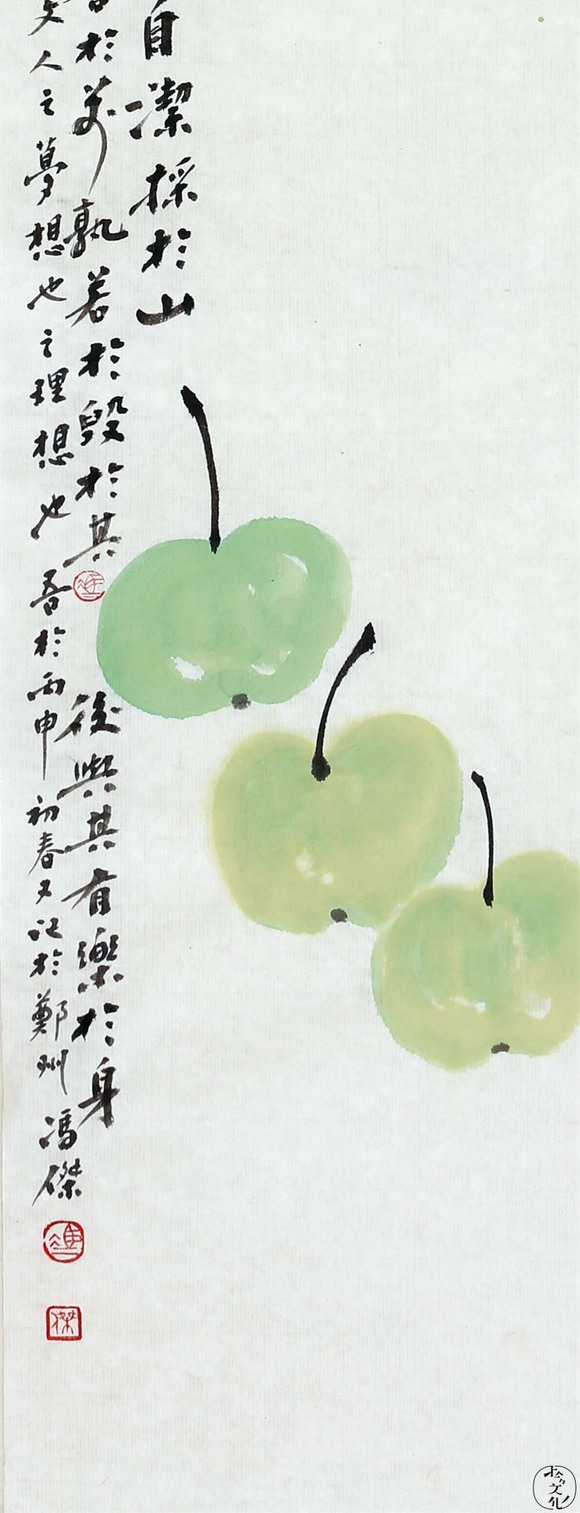 自潔採於山
於前孰若於毀於其
後與其有樂於身
文人之夢想也之理想也吾於丙申初春又記於鄭州馮傑
傑